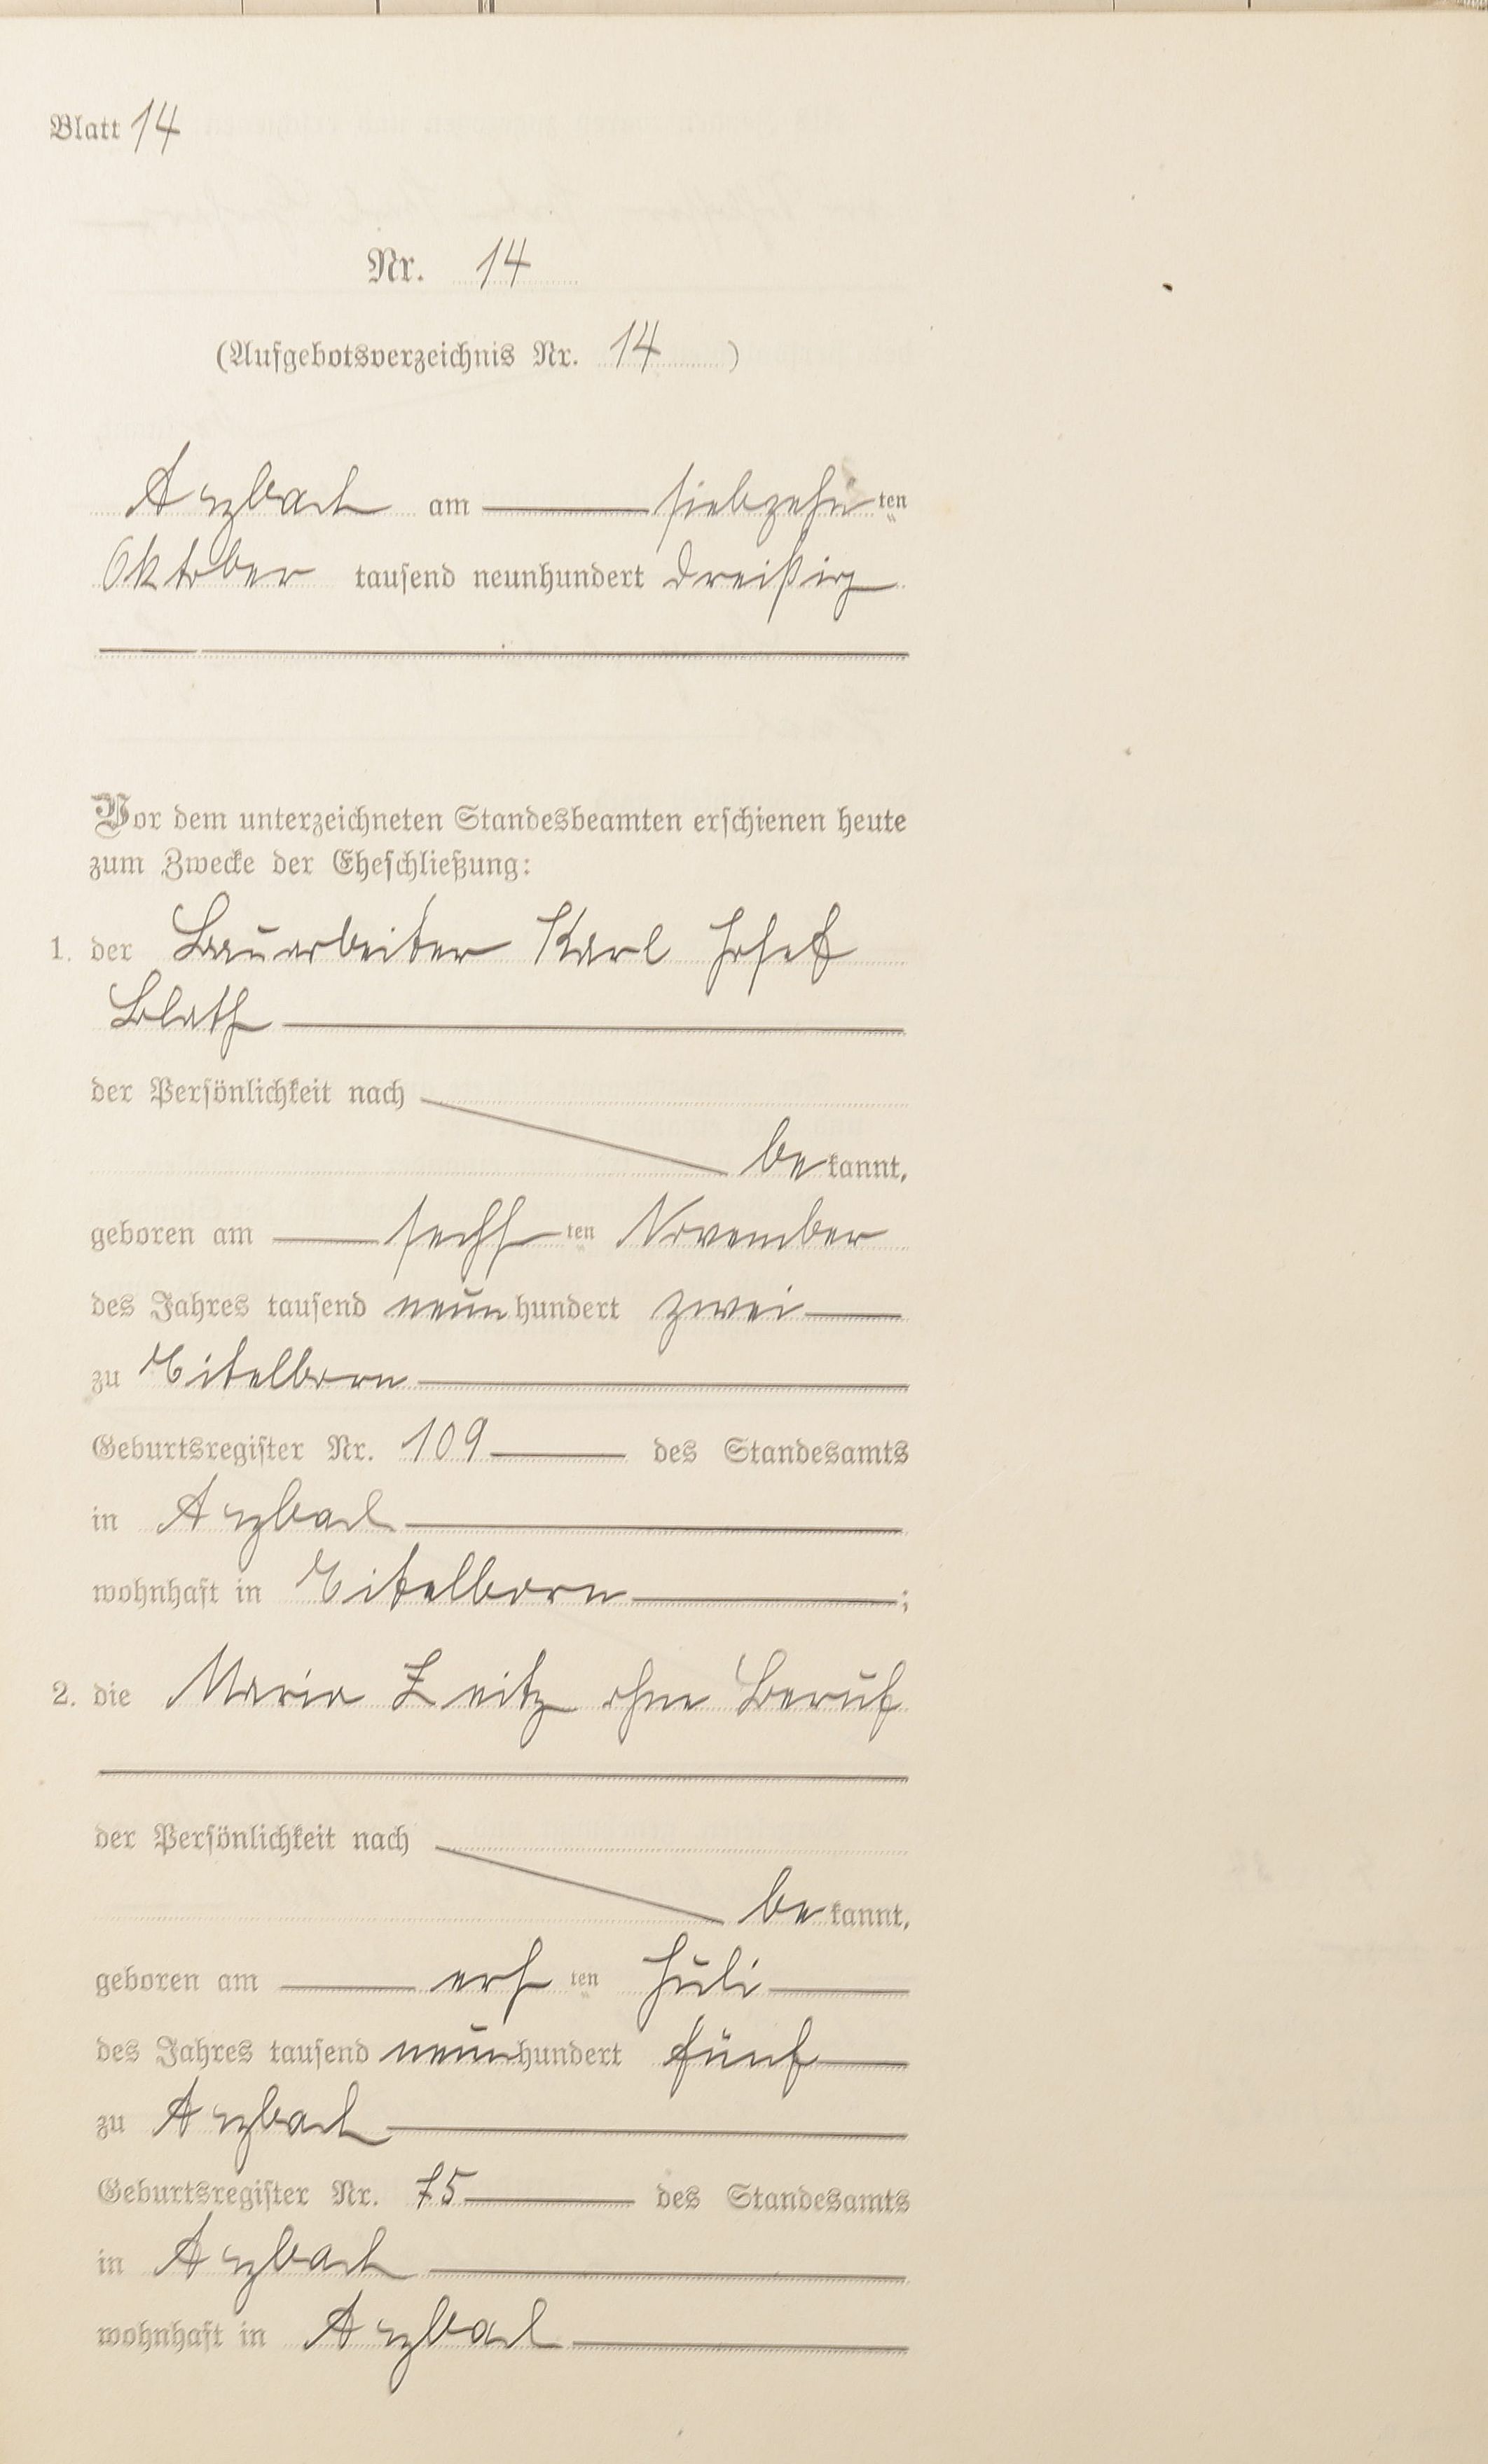 Blatt 14
Nr. 14
(Aufgebotsverzeichnis Nr. 14 )
Arzbach am siebzehnten
Oktober tausend neunhundert dreißig
Vor dem unterzeichneten Standesbeamten erschienen heute
zum Zwecke der Eheschließung:
1. der Bauarbeiter Karl Josef
Blath
der Persönlichkeit nach
bekannt,
geboren am sechsten November
des Jahres tausend neunhundert zwei
zu Eitelborn
Geburtsregister Nr. 109 des Standesamts
in Arzbach
wohnhaft in Eitelborn ;
2. die Maria Zeitz ohne Beruf
der Persönlichkeit nach
bekannt,
geboren am ersten Juli
des Jahres tausend neunhundert fünf
zu Arzbach
Geburtsregister Nr. 75 des Standesamts
in Arzbach
wohnhaft in Arzbach